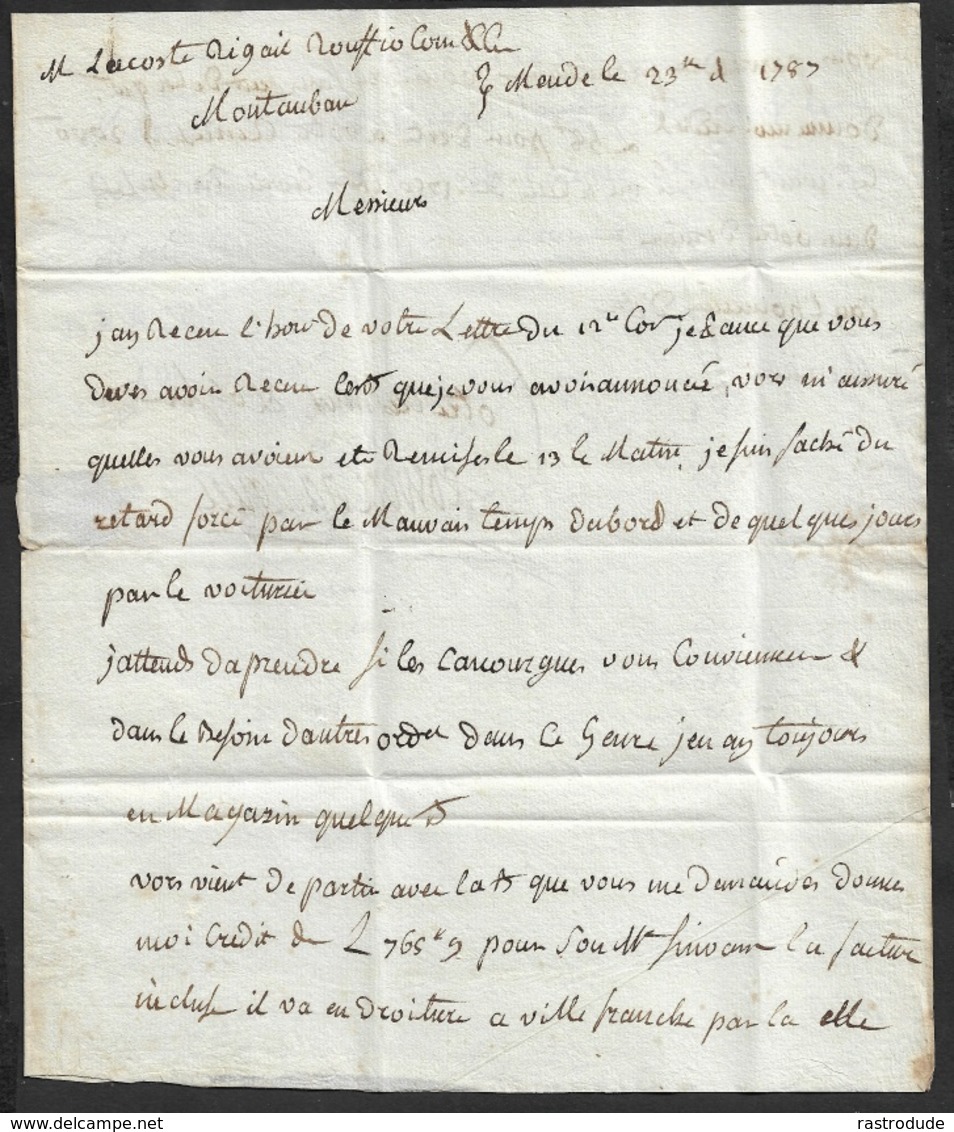 M Lacoste Rigail Rouffio Com
Montauban
Mende le 23 d 1787
Messieurs
jay Receu l'honr de votre Lettre du 12e Cor je & avec que vous
deves avoir Receu les que je vous avois annoncée, vors m'assuré
quelles vous avoient ete Remises le 13 le Matin, je suis faché du
retard forcé par le Mauvais temps dabord et de quelques jours
par le voiturier
jattends daprendre si les Canourgues vous Conviennen &
dans le Besoin dautres ord dans ce Genre jen ay toujours
en Magazin quelque
vors vient de partir avec la que vous me demandes donnes
moi Credit de L 765 9 pour Son Mt suivant la facture
incluse il va en droiture a ville franche par la elle
rastrodude